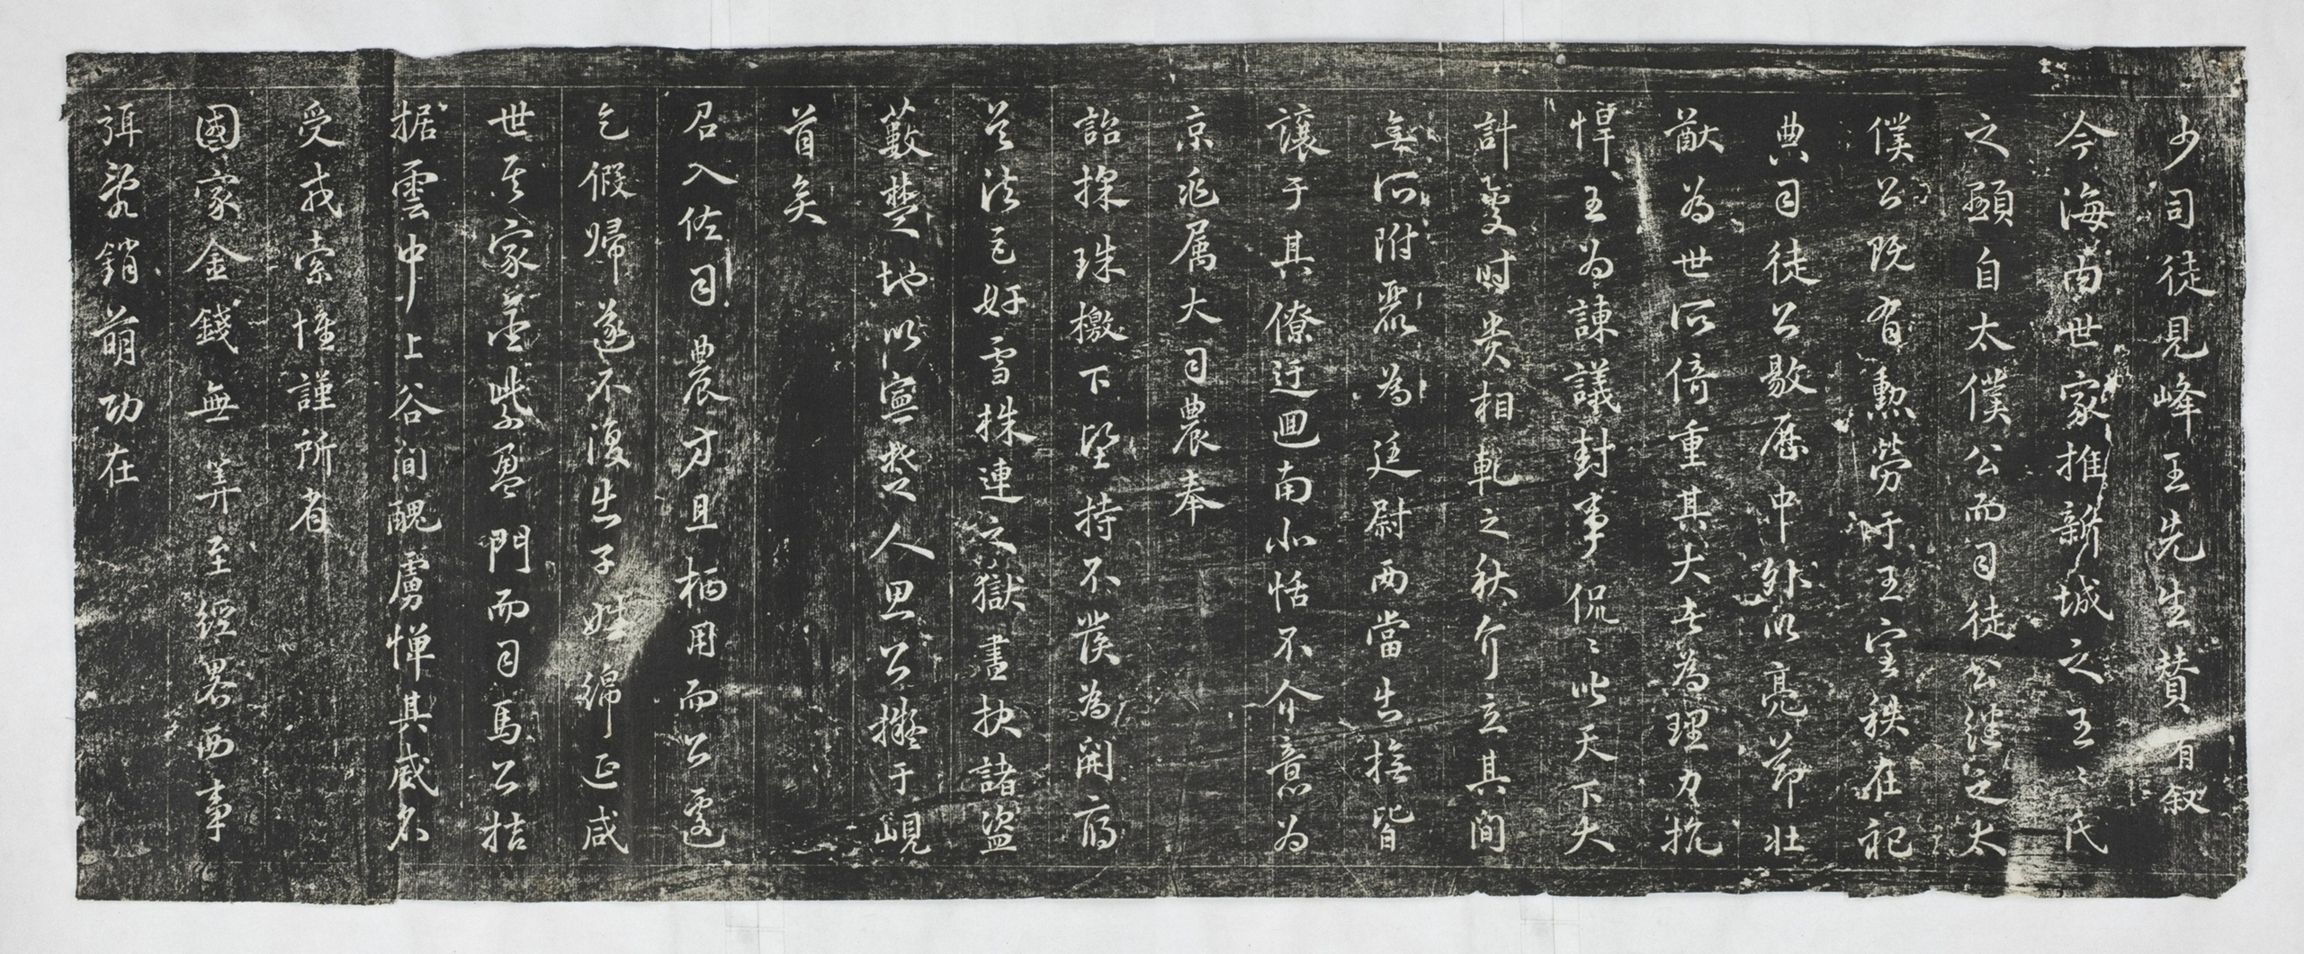 少司徒見峰王先生贊有叙
今海內世家推新城之王王氏
之顯自太僕公而司徒公繼之太
僕公既有勳勞于王室秩在祀
典司徒公敭歷中外以亮節壯
猷為世所倚重其大者為理力抗
悍王為諫議封事侃侃此天下大
計當時貴相軋之秋介立其間
無所附麗為廷尉兩當出撫皆
讓于其僚迂迴南北恬不介意為
京兆属大司農奉
詔採珠檄下堅持不發為開府
首法乞奸雪株連之獄盡執諸盜
藪楚地以寧楚之人思公擬于峴
首矣
召入佐司農方且柄用而公遽
乞假歸遂不復出子姓綿延咸
世其家金紫盈門而司馬公拮
据雲中上谷間醜虜憚其威名
受戎索惟謹所省
國家金錢無筭至經畧西事
弭亂銷萌功在